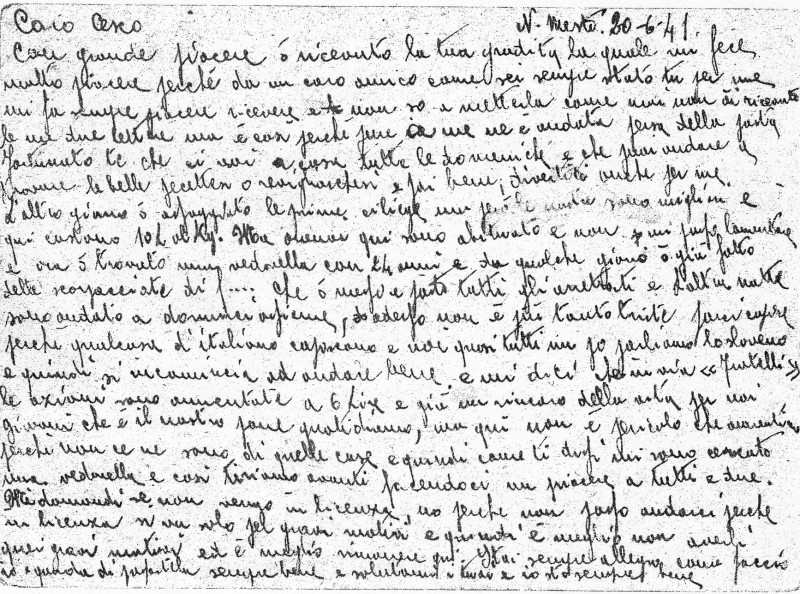 Caro Cesco N. Mesto. 20-6-41
Con grande piacere ó ricevuto la tua gradita la quale mi fece
molto piacere perché da un caro amico come sei sempre stato tu per me
mi fa sempre piacere ricevere e non so a metterla come mai non ai ricevuto
le mie due lettere ma é cosi perché pure a me ne é andata persa della posta
Fortunato te che vai a casa tutte le domeniche e che puoi andare a
trovare le belle e fai bene, divertiti anche per me
L'altro giorno ó assaggiato le prime ciliege ma peró le nostre sono migliori e
qui costano 10 L al Kg. Ma oramai qui sono abituato e non mi posso lamentare
e ora ó trovato una vedovella con 24 anni e da qualche giorno ó giá fatto
delle scorpacciate di f.... che ó messo a posto tutti gli arretrati e l'altra notte
sono andato a dormire assieme, adesso non é piú tanto triste farci capire
perché qualcosa d'italiano capiscono e noi quasi tutti un po parliamo lo sloveno
e quindi si incomincia ad andare bene e mi dici che in via «Fratelli»
le azioni sono aumentate a 6 Lire e giá un rincaro della vita per noi
giovani che é il nostro pane quotidiano, ma qui non é pericolo che aumentino
perché non ce ne sono di quelle case e quindi come ti dissi mi sono cercato
una vedovella e cosi tiriamo avanti facendoci un piacere a tutti e due.
Mi domandi se non vengo in licenza, no perche non posso andarci perche
in licenza si va solo pel gravi motivi e quindi é meglio non averli
quei gravi motivi ed é meglio rimanere qui. Stai sempre allegro come faccio
io e guarda di sempre bene e salutami i tuoi e io sto sempre bene